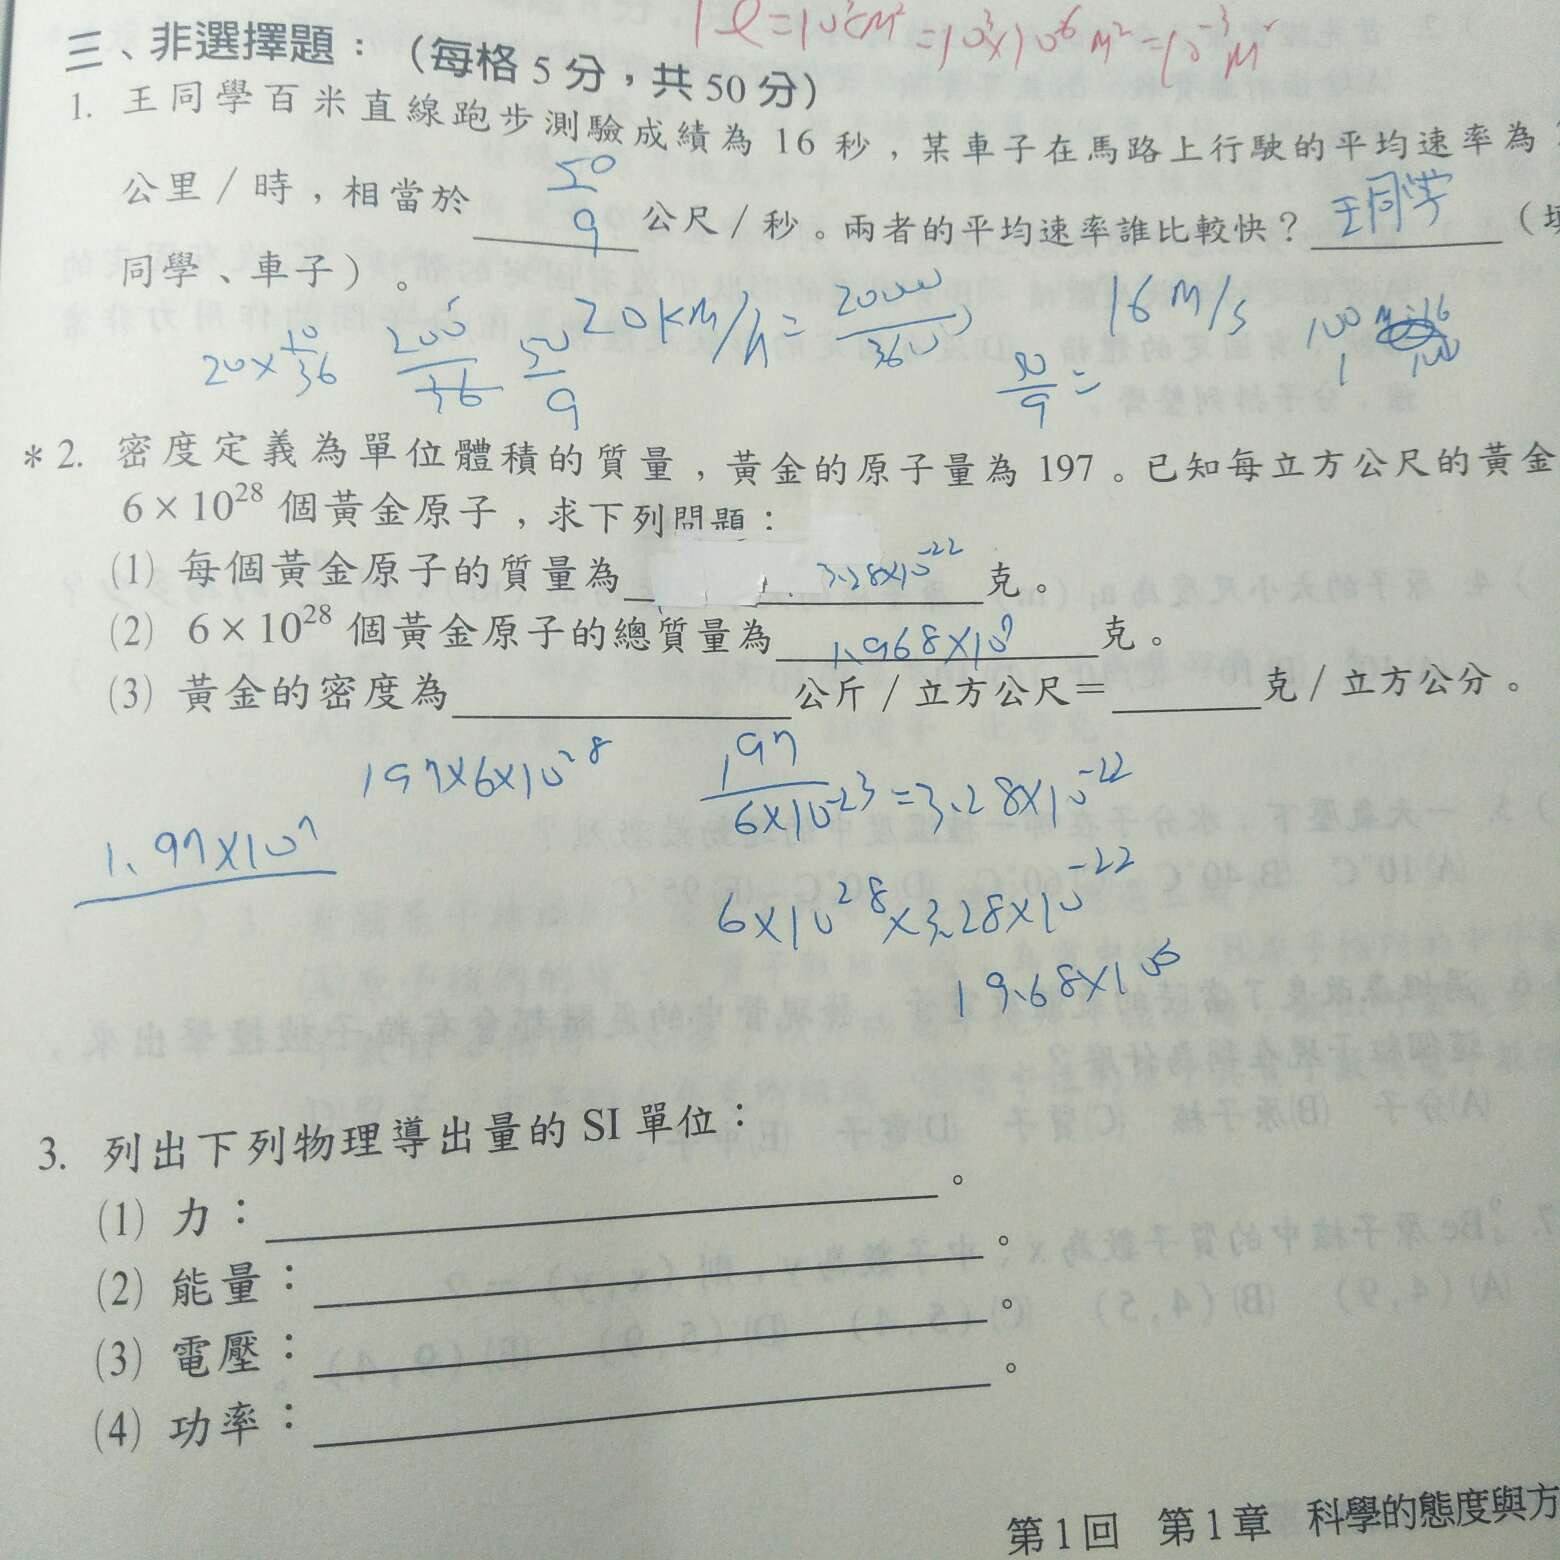 1ℓ=10³cm³=10³×10⁻⁶m³=10⁻³m³
三、非選擇題：（每格5分，共50分）
1. 王同學百米直線跑步測驗成績為16秒，某車子在馬路上行駛的平均速率為
公里／時，相當於 50/9 公尺／秒。兩者的平均速率誰比較快？王同學（填
同學、車子）。
20×10/36 200/36 50/9 20km/h=20000/3600 50/9= 16m/s
*2. 密度定義為單位體積的質量，黃金的原子量為197。已知每立方公尺的黃金
6×10²⁸個黃金原子，求下列問題：
(1) 每個黃金原子的質量為 3.28×10⁻²² 克。
(2) 6×10²⁸個黃金原子的總質量為 1.968×10⁷ 克。
(3) 黃金的密度為 公斤／立方公尺= 克／立方公分。
197×6×10²⁸ 197/6×10⁻²³=3.28×10⁻²²
1.97×10⁷
6×10²⁸×3.28×10⁻²²
19.68×10⁶
3. 列出下列物理導出量的SI單位：
(1) 力： 。
(2) 能量： 。
(3) 電壓： 。
(4) 功率： 。
第1回 第1章 科學的態度與方